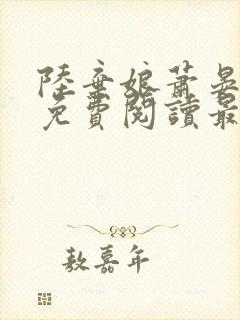 陸棄娘蕭晏
免費閱讀最
敖嘉年